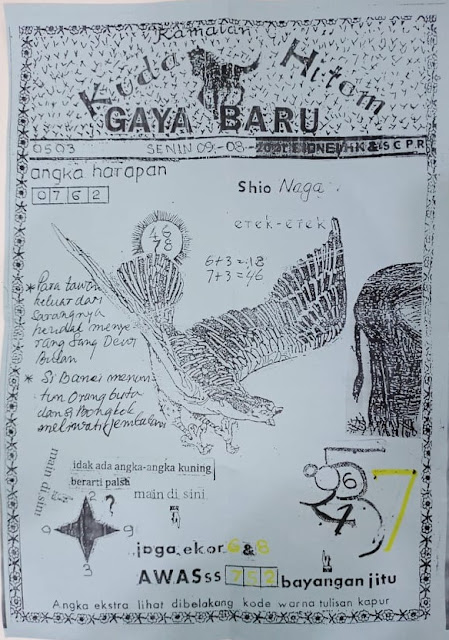 Ramalan
Kuda Hitam
GAYA BARU
0503 SENIN 09-08-2021 SIDNEI HK & SCPR
angka harapan
0762
Shio Naga
erek-erek
46
78
6+3=18
7+3=46
* Para tawon
keluar dari
sarangnya
hendak menye
rang Sang Dewi
Bulan
* Si Banci menun
tun orang buta
dan si Bongkok
melewati jembatan
main disini
idak ada angka-angka kuning
berarti palsu
main di sini
?
2
0 9
3
5 6 7
4
jaga ekor 6 & 8
AWASss 762 bayangan jitu
Angka ekstra lihat dibelakang kode warna tulisan kapur